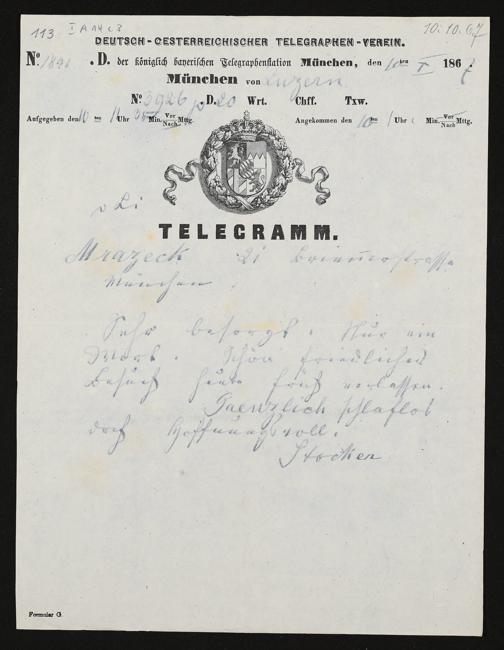 113 I A 14 c 3 10.10.67
DEUTSCH-OESTERREICHISCHER TELEGRAPHEN-VEREIN.
No. D. der königlich bayerischen Telegraphenstation München, den 10ten 1867
München von Luzern
No. 3926 p. D. 20 Wrt. Chff. Txw.
Aufgegeben den 10ten Uhr Min. Vor/Nach Mttg. Angekommen den 10ten Uhr Vor/Nach Mttg.
TELEGRAMM.
Mrazeck 21 Briennerstrasse
München.
Sehr besorgt. Nur ein
Wort. Schon friedlichen
Besuch heute früh verlassen.
Gaenzlich schlaflos
doch hoffnungsvoll.
Stocker
Formular G.